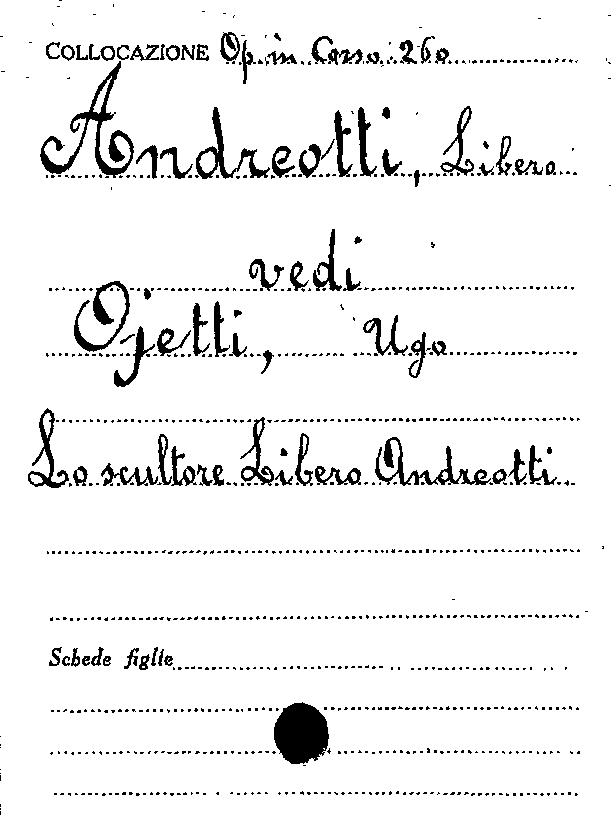 COLLOCAZIONE Op. in Corso 260
Andreotti, Libero
vedi
Ojetti, Ugo
Lo scultore Libero Andreotti
Schede figlie